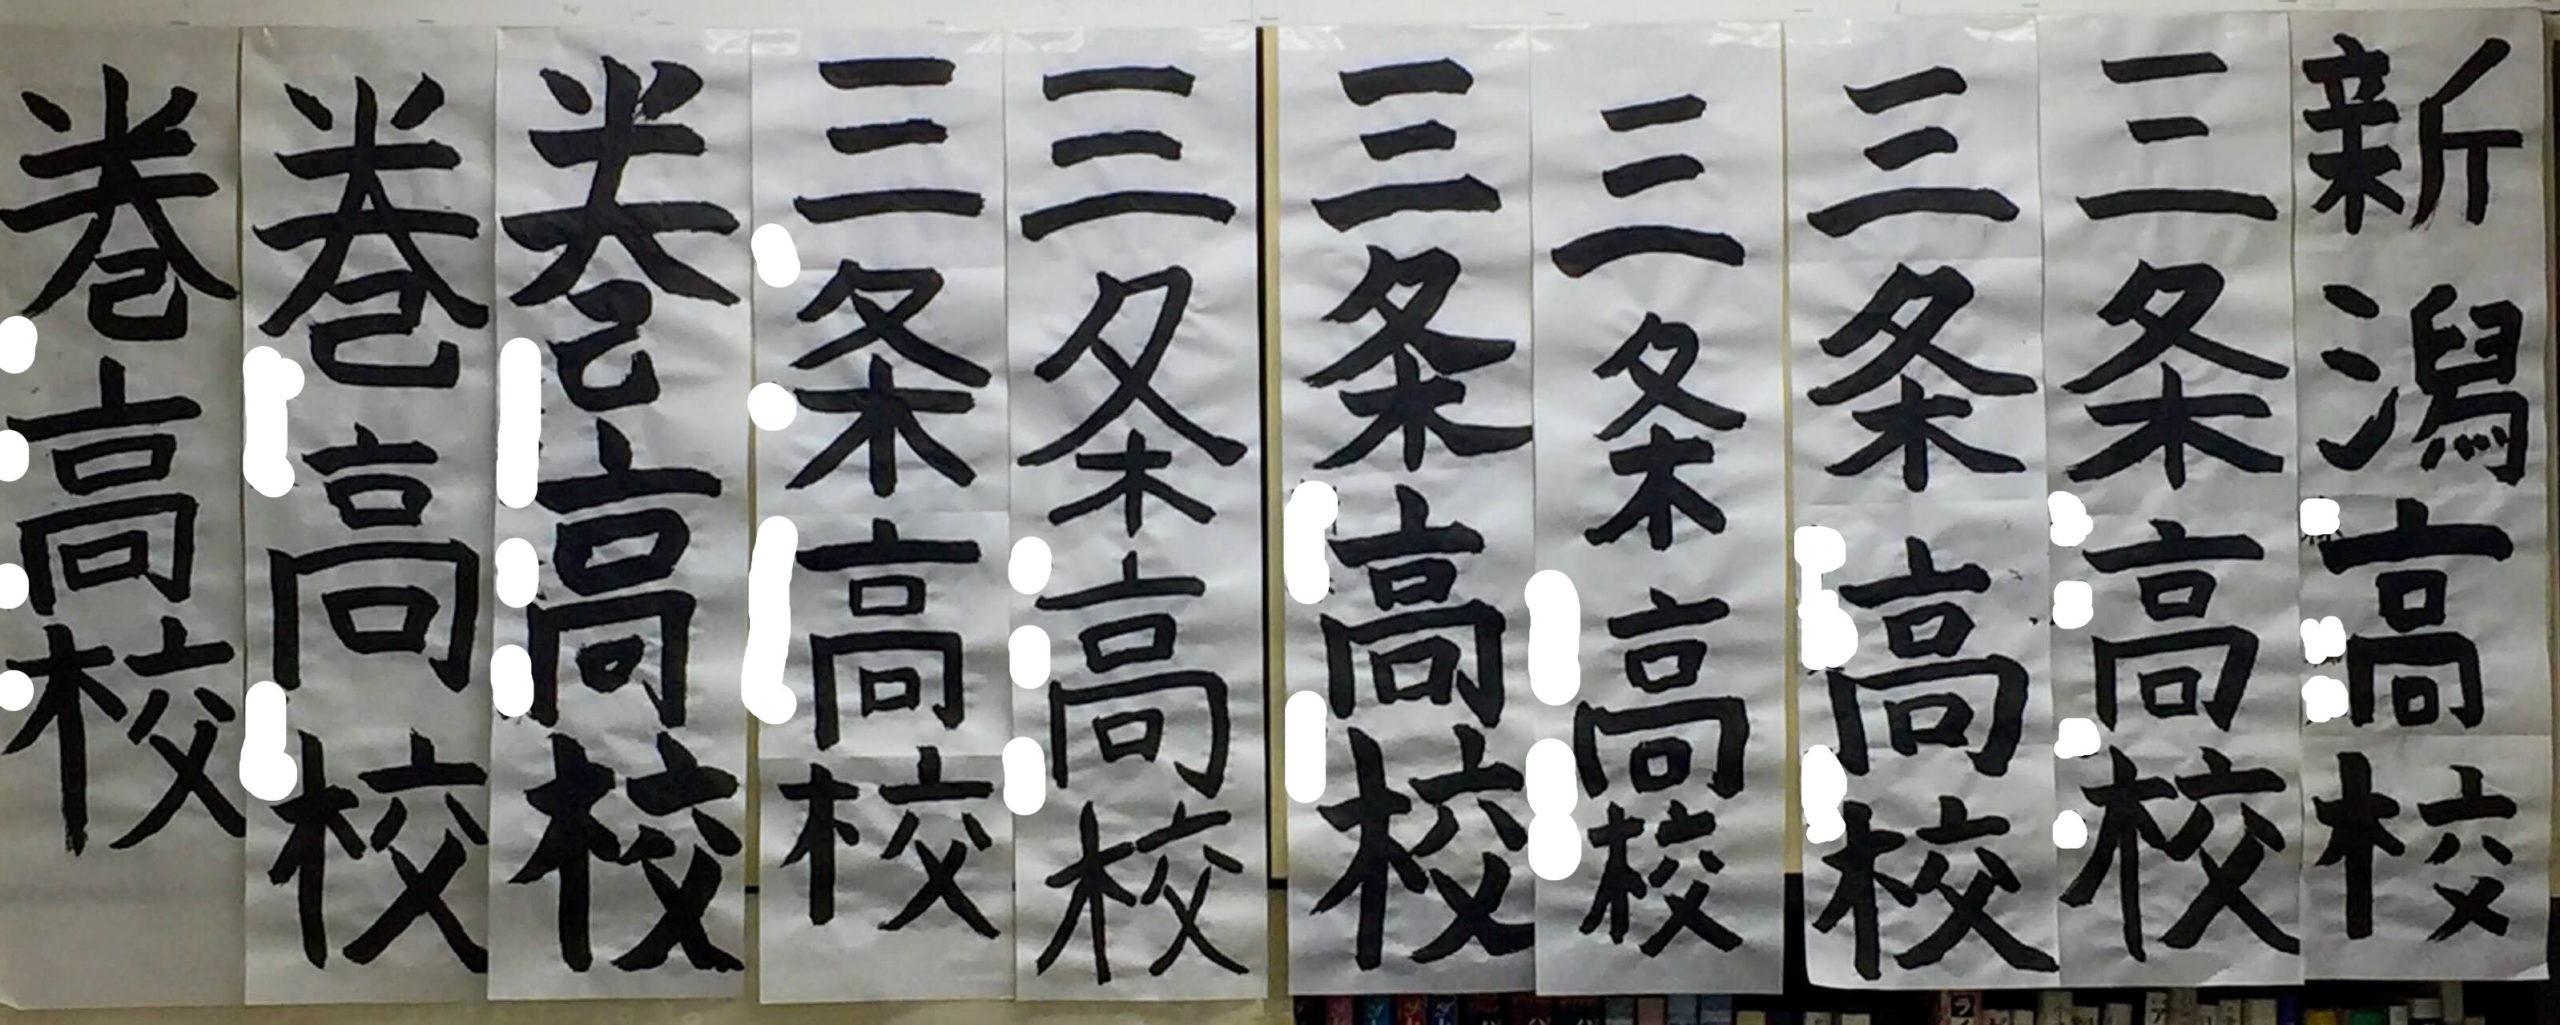 新潟高校
三条高校
三条高校
三条高校
三条高校
三条高校
三条高校
巻高校
巻高校
巻高校